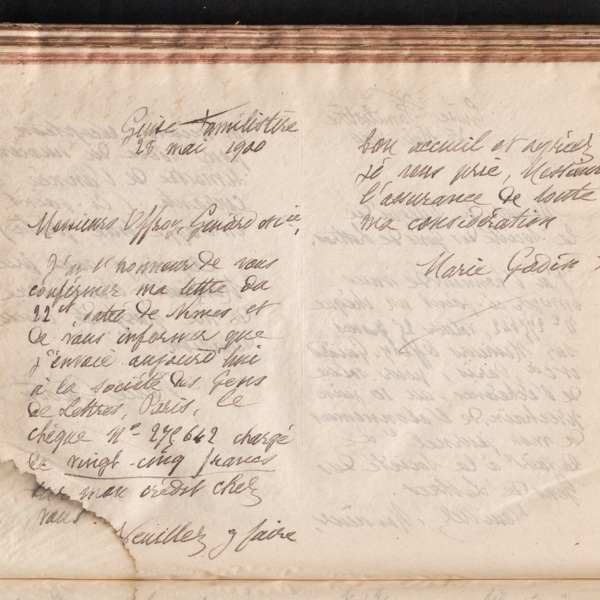 Guise Familistère
28 mai 1900
Messieurs Offroy, Guiard & Cie,
J'ai l'honneur de vous
confirmer ma lettre du
22 datée de Nimes, et
de vous informer que
j'envoie aujourd'hui
à la Société des Gens
de Lettres, Paris, le
chèque No 278642 chargé
de vingt-cinq francs
sur mon crédit chez
vous. Veuillez y faire
bon accueil et agréer
je vous prie, Messieurs
l'assurance de toute
ma considération
Marie Godin